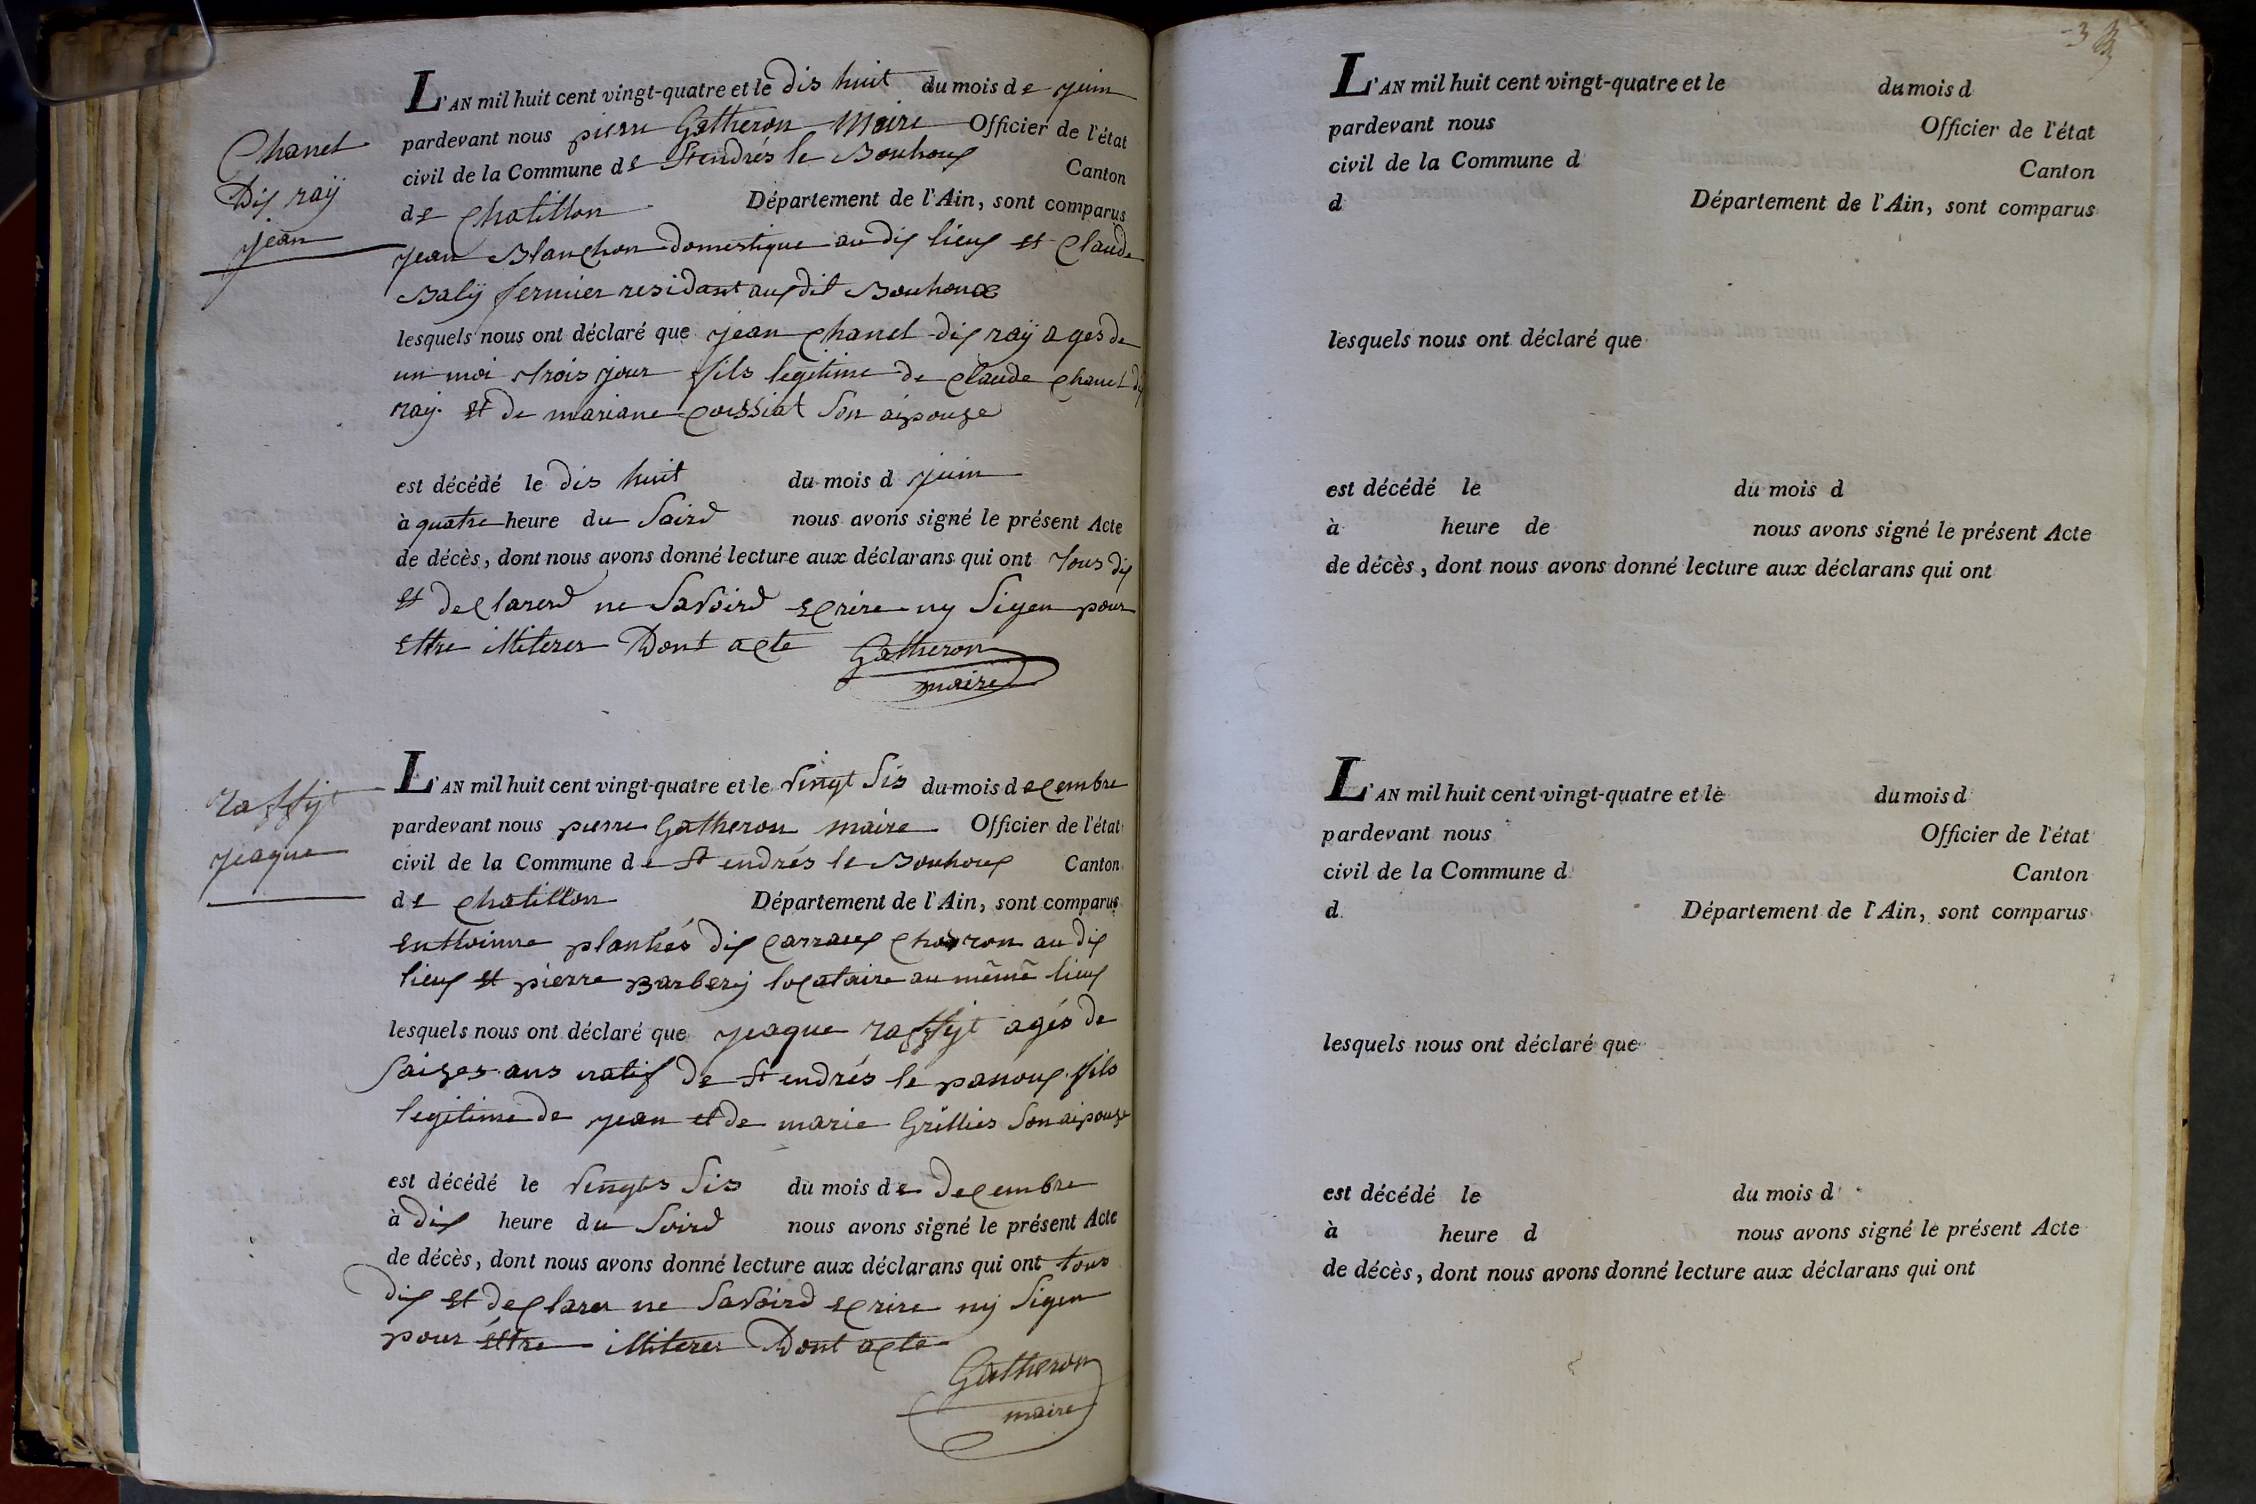 Chanel
Dis raÿ
jean
L'AN mil huit cent vingt-quatre et le dis huit du mois de juin
pardevant nous pierre Gatheron Maire Officier de l'état
civil de la Commune de St endrés le Bouhoux Canton
de Chatillon Département de l'Ain, sont comparus
jean Blanchon domestique au dis lieux et Claude
Balÿ fermier residant aux dit Bouhoux
lesquels nous ont déclaré que jean Chanel dis raÿ ages de
un moi trois jour fils legitime de Claude Chanel dis
raÿ et de mariane Coissiat son aipouze
est décédé le dis huit du mois d juin
à quatre heure du Soird nous avons signé le présent Acte
de décès, dont nous avons donné lecture aux déclarans qui ont tous dis
et declarerd ne Savoird ecrire ny Signer pour
ettre illiterer Dont acte Gatheron
maire
raffyt
jeaque
L'AN mil huit cent vingt-quatre et le vingt sis du mois decembre
pardevant nous pierre Gatheron maire Officier de l'état
civil de la Commune de St endrés le Bouhoux Canton
de Chatillon Département de l'Ain, sont comparus
enthoinne plantiés dis Carraux au dis
lieux et pierre Barberÿ locataire au même lieux
lesquels nous ont déclaré que jeaque raffyt agés de
saizes ans natif de St endrés le panoux fils
legitime de jean et de marie Grillies son aipouze
est décédé le vingts sis du mois de decembre
à dix heure du Soird nous avons signé le présent Acte
de décès, dont nous avons donné lecture aux déclarans qui ont tous
dis et declarer ne Savoird ecrire nÿ Signer
pour éttre illiterer Dont acte
Gatheron
maire
L'AN mil huit cent vingt-quatre et le du mois d
pardevant nous Officier de l'état
civil de la Commune d Canton
d Département de l'Ain, sont comparus
lesquels nous ont déclaré que
est décédé le du mois d
à heure de nous avons signé le présent Acte
de décès, dont nous avons donné lecture aux déclarans qui ont
L'AN mil huit cent vingt-quatre et le du mois d
pardevant nous Officier de l'état
civil de la Commune d Canton
d Département de l'Ain, sont comparus
lesquels nous ont déclaré que
est décédé le du mois d
à heure d nous avons signé le présent Acte
de décès, dont nous avons donné lecture aux déclarans qui ont